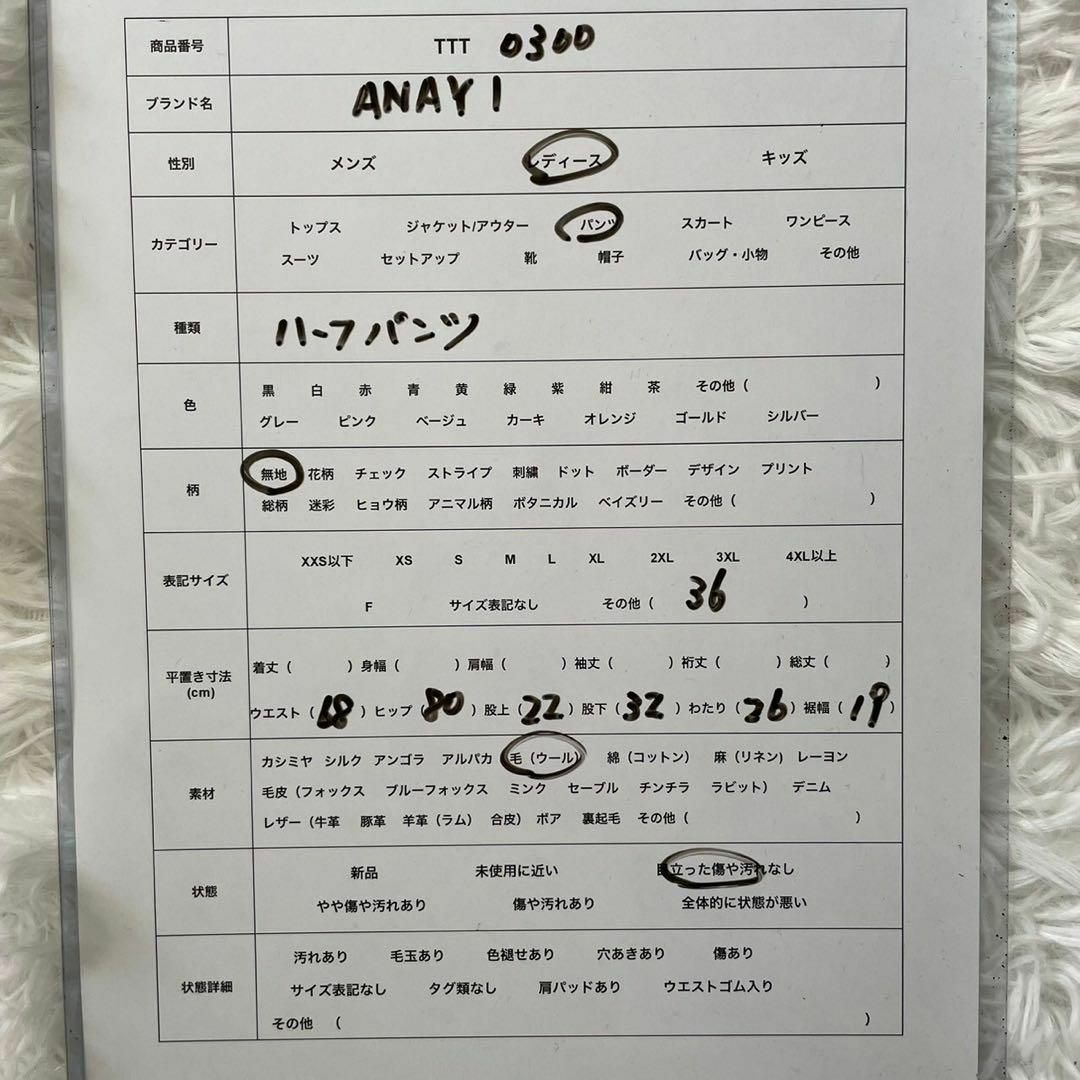 商品番号 TTT 0300
ブランド名 ANAYI
性別 メンズ レディース キッズ
カテゴリー
トップス ジャケット/アウター パンツ スカート ワンピース
スーツ セットアップ 靴 帽子 バッグ・小物 その他
種類 ハーフパンツ
色
黒 白 赤 青 黄 緑 紫 紺 茶 その他（ ）
グレー ピンク ベージュ カーキ オレンジ ゴールド シルバー
柄
無地 花柄 チェック ストライプ 刺繍 ドット ボーダー デザイン プリント
総柄 迷彩 ヒョウ柄 アニマル柄 ボタニカル ペイズリー その他（ ）
表記サイズ
XXS以下 XS S M L XL 2XL 3XL 4XL以上
F サイズ表記なし その他（ 36 ）
平置き寸法
(cm)
着丈（ ）身幅（ ）肩幅（ ）袖丈（ ）裄丈（ ）総丈（ ）
ウエスト（68）ヒップ（80）股上（22）股下（32）わたり（26）裾幅（19）
素材
カシミヤ シルク アンゴラ アルパカ 毛（ウール） 綿（コットン） 麻（リネン) レーヨン
毛皮（フォックス ブルーフォックス ミンク セーブル チンチラ ラビット） デニム
レザー（牛革 豚革 羊革（ラム） 合皮） ボア 裏起毛 その他（ ）
状態
新品 未使用に近い 目立った傷や汚れなし
やや傷や汚れあり 傷や汚れあり 全体的に状態が悪い
状態詳細
汚れあり 毛玉あり 色褪せあり 穴あきあり 傷あり
サイズ表記なし タグ類なし 肩パッドあり ウエストゴム入り
その他 （ ）